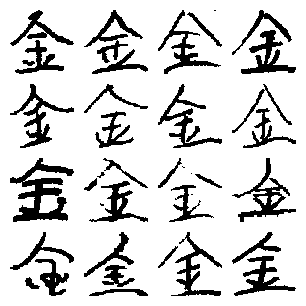 金金金金
金金金金
金金金金
金金金金